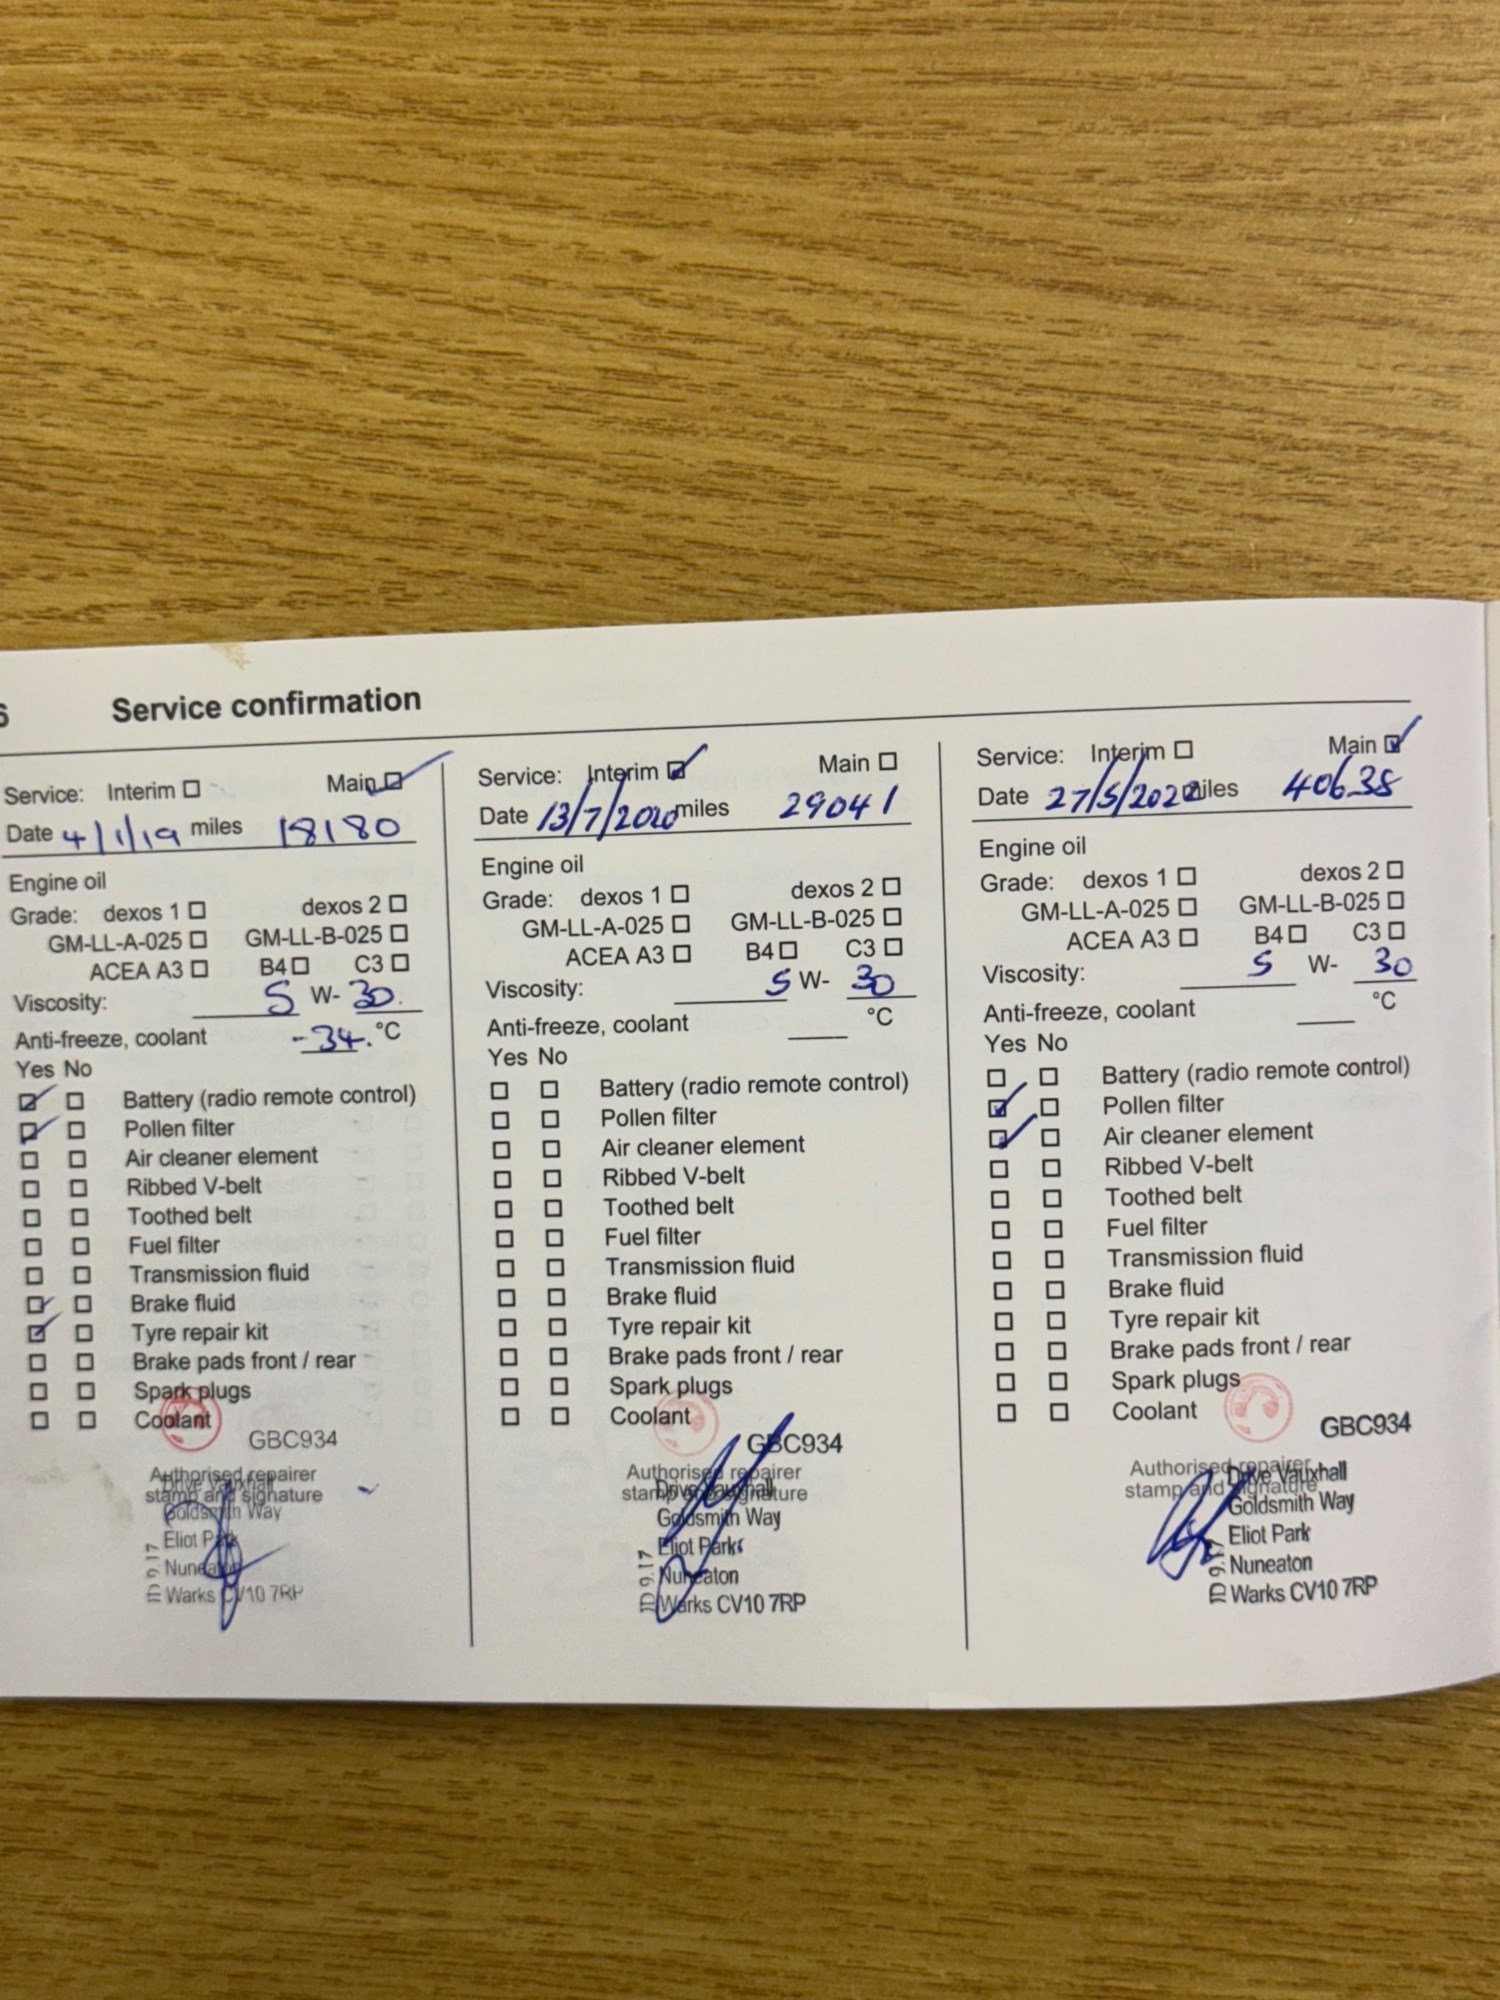 6 Service confirmation
Service: Interim Main
Date 4/1/19 miles 18180
Engine oil
Grade: dexos 1 dexos 2
GM-LL-A-025 GM-LL-B-025
ACEA A3 B4 C3
Viscosity: 5 W- 30
Anti-freeze, coolant -34. °C
Yes No
Battery (radio remote control)
Pollen filter
Air cleaner element
Ribbed V-belt
Toothed belt
Fuel filter
Transmission fluid
Brake fluid
Tyre repair kit
Brake pads front / rear
Spark plugs
Coolant
GBC934
Authorised repairer
stamp and signature
Drive Vauxhall
Goldsmith Way
Eliot Park
Nuneaton
Warks CV10 7RP
ID 9.17
Service: Interim Main
Date 13/7/2020 miles 29041
Engine oil
Grade: dexos 1 dexos 2
GM-LL-A-025 GM-LL-B-025
ACEA A3 B4 C3
Viscosity: 5 W- 30
Anti-freeze, coolant °C
Yes No
Battery (radio remote control)
Pollen filter
Air cleaner element
Ribbed V-belt
Toothed belt
Fuel filter
Transmission fluid
Brake fluid
Tyre repair kit
Brake pads front / rear
Spark plugs
Coolant
GBC934
Authorised repairer
stamp and signature
Drive Vauxhall
Goldsmith Way
Eliot Park
Nuneaton
Warks CV10 7RP
ID 9.17
Service: Interim Main
Date 27/5/2022 miles 40638
Engine oil
Grade: dexos 1 dexos 2
GM-LL-A-025 GM-LL-B-025
ACEA A3 B4 C3
Viscosity: 5 W- 30
Anti-freeze, coolant °C
Yes No
Battery (radio remote control)
Pollen filter
Air cleaner element
Ribbed V-belt
Toothed belt
Fuel filter
Transmission fluid
Brake fluid
Tyre repair kit
Brake pads front / rear
Spark plugs
Coolant
GBC934
Authorised repairer
stamp and signature
Drive Vauxhall
Goldsmith Way
Eliot Park
Nuneaton
Warks CV10 7RP
ID 9.17